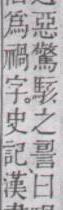 惡驚駭之䛐曰
爲禍字。史記漢